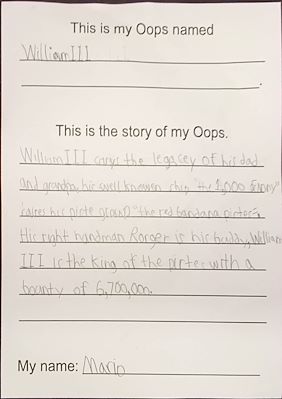 This is my Oops named
William III
This is the story of my Oops.
William III carys the legacey of his dad
and grandpa, his well knowen ship "the 1,000 Sunny"
caires his picte group "the red bandana pictors.
His right handman Rorger is his buddy, William
III is the king of the pirtes with a
bounty of 6,700,000.
My name: Mario